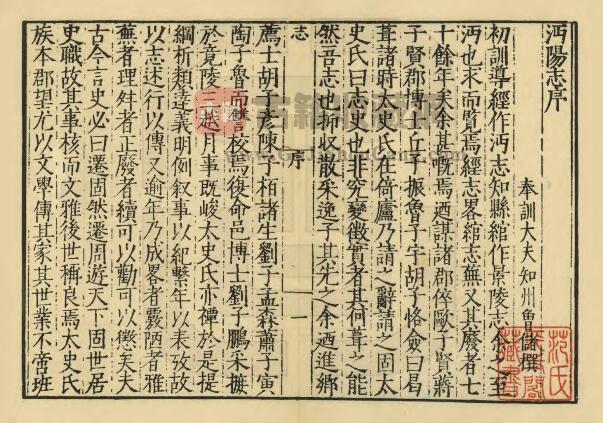 沔陽志序
奉訓大夫知州曾儲撰
初訓導經作沔志知縣綰作景陵志余之至
沔也求而覽焉經志畧綰志無又其廢者七
十餘年矣余甚嘅焉迺謀諸郡倅歐子賢蔣
子賢郡博士丘子振魯子宇胡子恪僉曰曷
葺諸時太史氏在倚廬乃請之辭請之固太
史氏曰志史也非究變徵實者其何葺之能
然吾志也抑收散采逸子其先之余迺進鄉
志 序 一
薦士胡子彥陳子栢諸生劉子孟森蕭子寅
陶子魯而讐校焉復命邑博士劉子鵬采摭
於竟陵三越月事既峻太史氏亦禫於是提
綱析類達義明例叙事以紀繫年以表攷故
以志述行以傳又逾年乃成畧者覈陋者雅
蕪者理舛者正廢者續可以勸可以懲矣夫
古今言史必曰遷固然遷周遊天下固世居
史職故其事核而文雅後世稱良焉太史氏
族本郡望尤以文學傳其家其世業不啻班
范氏
藏書